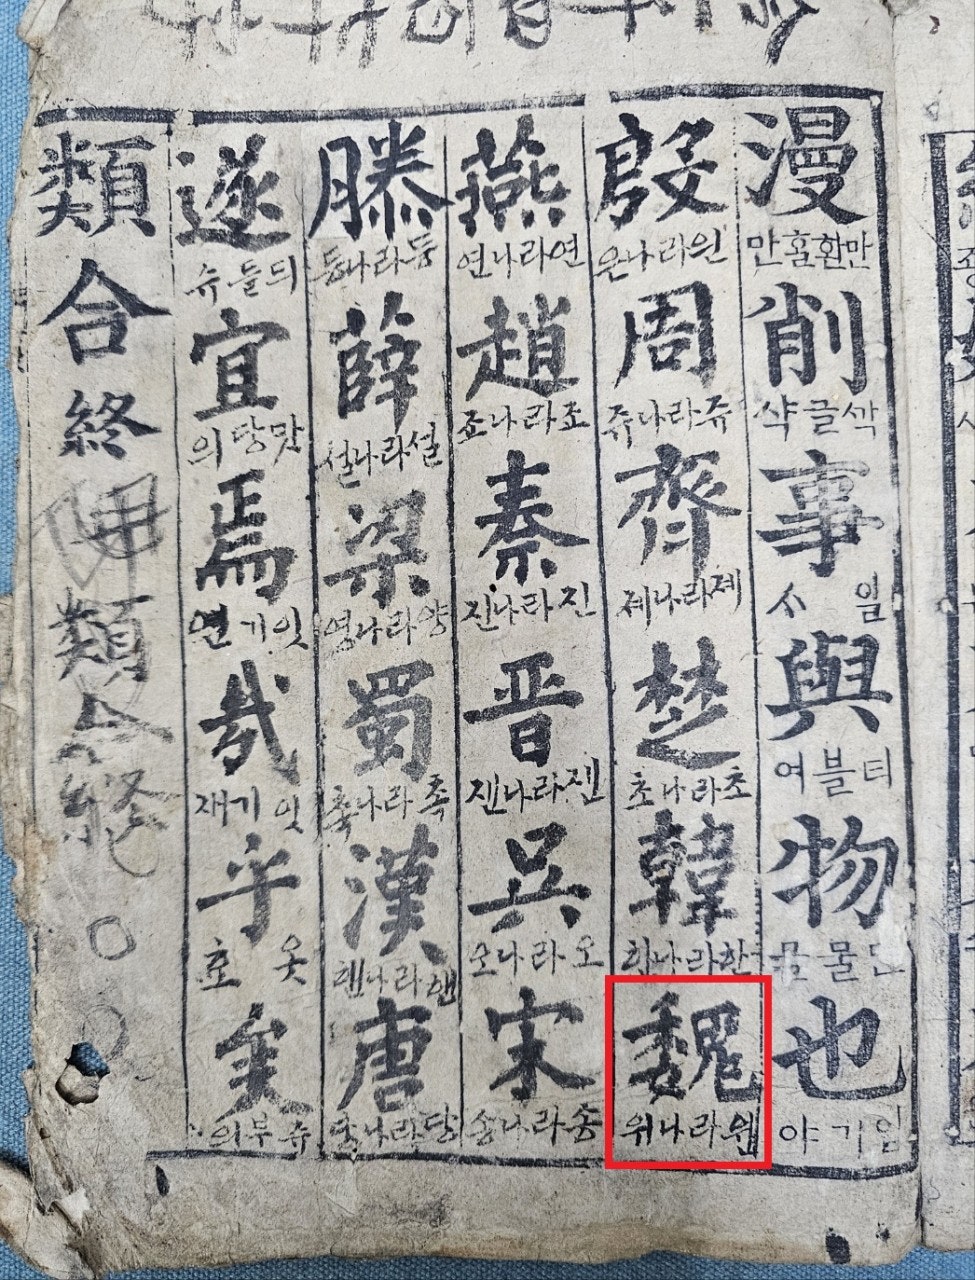 漫
만홀환만
削
샥글싹
事
ᄉᆞ 일
與
여블티
物
물
也
야기
殷
은나라읜
周
쥬나라쥬
齊
졔나라졔
楚
초나라초
韓
나라한
魏
위나라웬
燕
연나라연
趙
죠나라죠
秦
진나라진
晋
젼나라젼
吳
오나라오
宋
송나라송
滕
등나라등
薛
설나라설
梁
영나라양
蜀
쵹나라쵹
漢
핸나라핸
唐
당나라당
遂
슈들듸
宜
의당맛
焉
연기잇
哉
재기잇
乎
호 옷
矣
의부슈
類
合
終
類
合
終